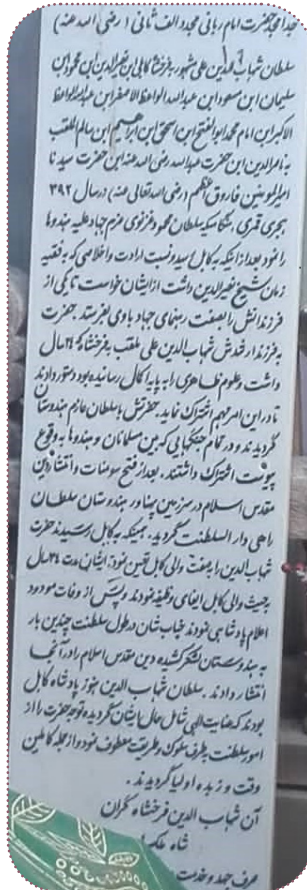 جد امجد حضرت امام ربانی مجدد الف ثانی ( رضی الله عنه )
سلطان شهاب الدین علی مشهور به فرخشاه کابلی ابن نصیرالدین ابن محمود ابن
سلیمان ابن مسعود ابن عبدالله الواعظ الاصغر ابن عبدالله الواعظ
الاکبر ابن امام محمد ابوالفتح ابن اسحق ابن ابراهیم ابن سالم الملقب
به ناصرالدین ابن حضرت عبدالله رضی الله عنه ابن حضرت سیدنا
امیرالمومنین فاروق اعظم (رضی الله تعالی عنه) در سال ۳۹۲
هجری قمری ، هنگامیکه سلطان محمود غزنوی عزم جهاد علیه هندوها
را نمود بعد از اینکه به کابل رسید و نسبت ارادت و اخلاصی که به فقیه
زمان شیخ نصیرالدین داشت از ایشان خواست تا یکی از
فرزندانش را بصفت رهنمای جهاد با وی بفرستد. حضرت
به فرزند ارشدش شهاب الدین علی ملقب به فرخشاه که ۲۴ سال
داشت و علوم ظاهری را به پایه اکمال رسانیده بود دستور دادند
تا در این امر مهم اشتراک نماید. حضرتش با سلطان عازم هندوستان
گردیدند و در تمام جنگهایی که بین مسلمانان و هندوها به وقوع
پیوست اشتراک داشتند. بعد از فتح سومنات و انتشار دین
مقدس اسلام در سرزمین پهناور هندوستان سلطان
راهی دار السلطنت گردید. همینکه به کابل رسیدند حضرت
شهاب الدین را بصفت والی کابل تعیین نمود. ایشان مدت ۳۴ سال
بحیث والی کابل ایفای وظیفه نمودند و پس از وفات مودود
اعلام پادشاهی نمودند جناب شان در طول سلطنت چندین بار
به هندوستان لشکر کشیده دین مقدس اسلام را در آنجا
انتشار دادند. سلطان شهاب الدین هنوز پادشاه کابل
بودند که عنایت الهی شامل حال ایشان گردیده توجه حضرت را از
امور سلطنت به طرف سلوک و طریقت معطوف نمود و از جمله کاملین
وقت و زبده اولیا گردیدند .
آن شهاب الدین فرخشاه گران
شاه ملک
صرف حمد و خدمت